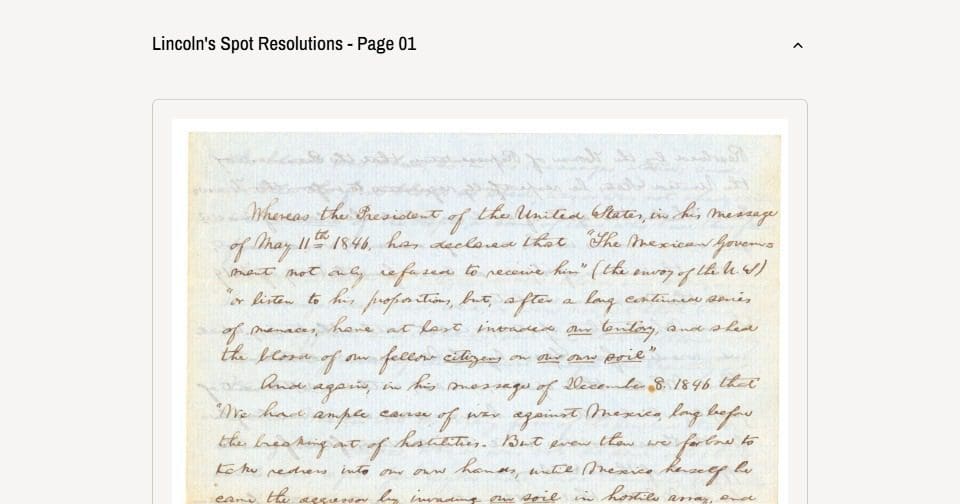 Lincoln's Spot Resolutions - Page 01
Whereas the President of the United States, in his message
of May 11th 1846, has declared that "The Mexican Govern-
ment not only refused to receive him" (the envoy of the U.S.)
"or listen to his propositions, but, after a long continued series
of menaces, have at last invaded our teritory, and shed
the blood of our fellow citizens on our own soil"
And again, in his message of December 8. 1846 that
"We had ample cause of war against Mexico, long before
the breaking out of hostilities. But even then we forbore to
take redress into our own hands, until Mexico herself be
came the aggressor by invading our soil in hostile array, and